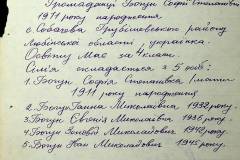 Громадянці Бопун Софії Степанівні
1911 року народження
с. Собагова Грубешівського району
Люблінської області, українка.
Освіту має за 4 клас.
Сім'я складається з 5 осіб:
1. Бопун Софія Степанівна /мати/
1911 року народження
2. Бопун Ганна Миколаївна 1932 року.
3. Бопун Євгенія Миколаївна 1936 року.
4. Бопун Зеновій Миколайович 1942 року.
5. Бопун Іван Миколайович 1945 року.